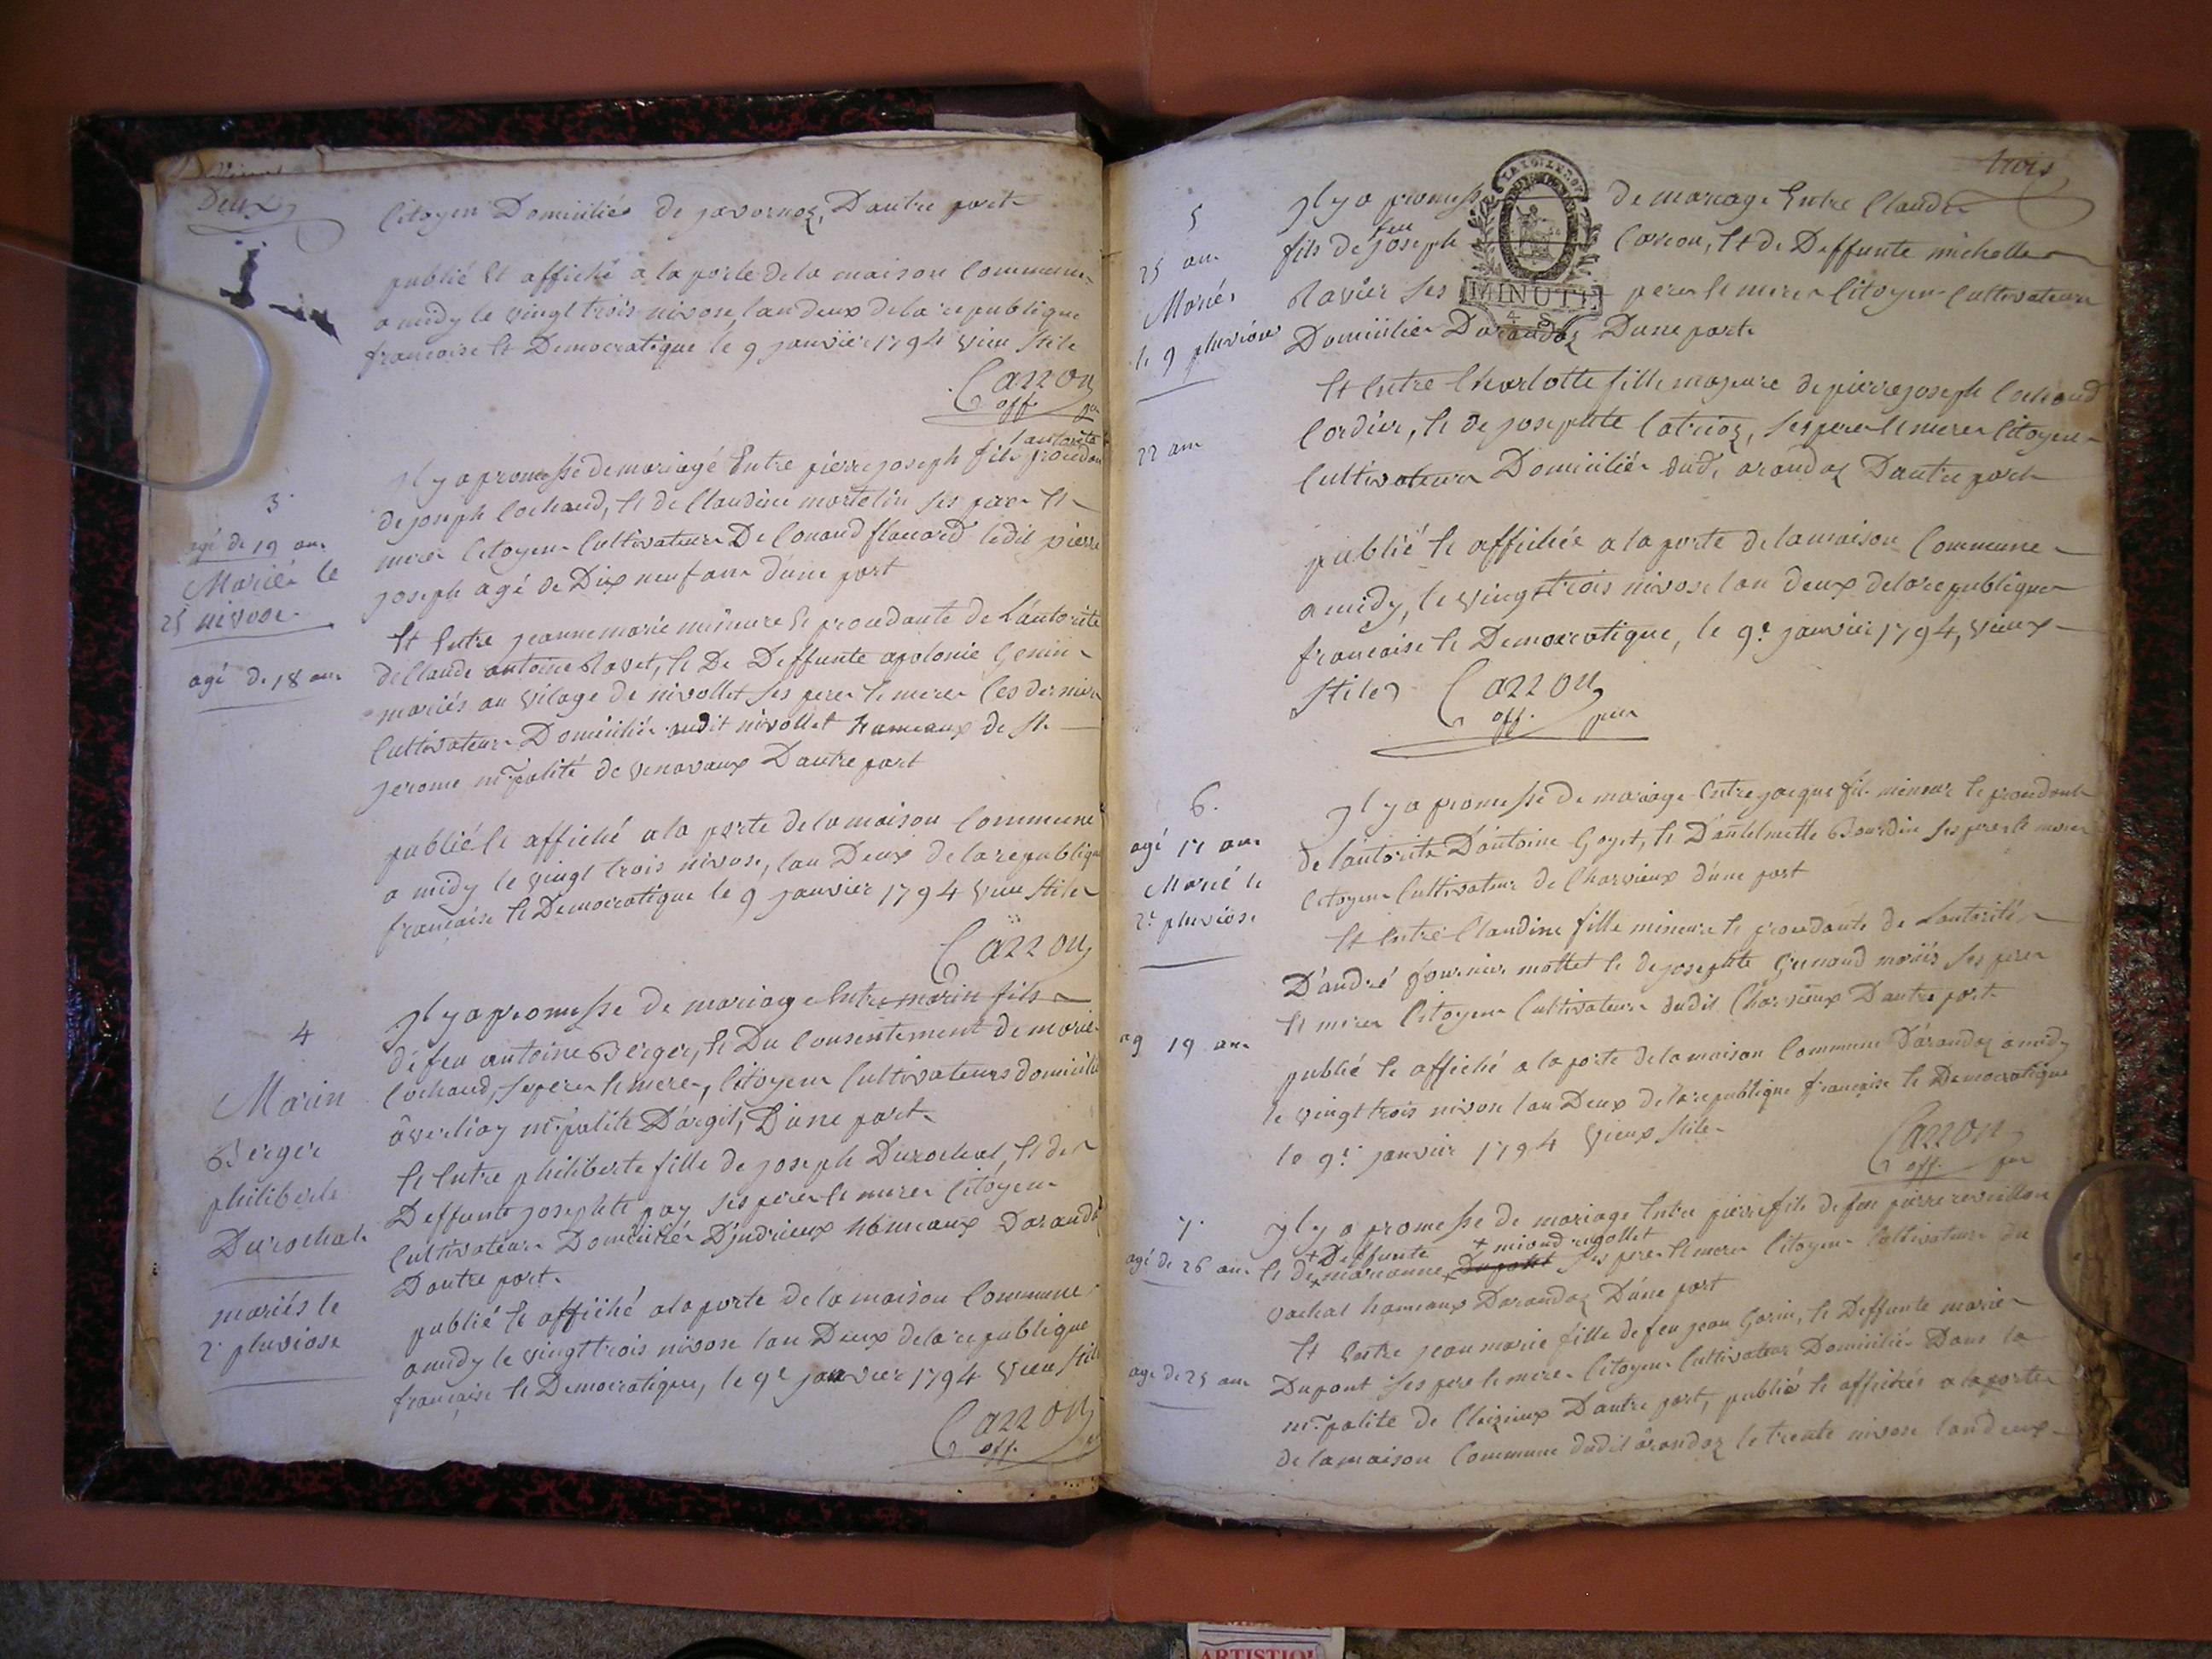 Deux
Citoyen Domiciliés de javornoz, Dautre part
publié Et affiché a la porte de la maison Commune
a midy le vingt trois nivose, lan deux de la republique
francoise Et Democratique le 9 janvier 1794 vieu stile
Cazzon
off. pu
3
agé de 19 ans
Mariés le
25 nivose
agé de 18 ans
Il y a promesse de mariage Entre pierre joseph fils procedan
lautorité
de joseph Cochaud, Et de Claudine mortelin ses pere Et
mere Citoyens Cultivateurs De Conand ledit pierre
joseph agé de Dix neuf ans d'une part
Et Entre jeanne marie mineure Et procedante de L'autorité
de Claude antoine Ravet, Et De Deffunte apolonie Genin
mariés au vilage de nivollet ses pere Et mere Ces derniers
Cultivateurs Domiciliés audit nivollet hameaux de St
jerome m.palité de Denavaux Dautre part
publié Et affiché a la porte de la maison Commune
a midy le vingt trois nivose, lan Deux de la republique
françaisse Et Democratique le 9 janvier 1794 vieu stile
Cazzon
4
Marin
Berger
philiberte
Durochat
mariés le
2 pluviose
Il y a promesse de mariage Entre marin fils
de feu antoine Berger, Et Du Consentement de marie
Cochaud, ses pere Et mere, Citoyens Cultivateurs domiciliés
a m.palité D'argit, D'une part
Et Entre philiberte fille de joseph Durochat, Et de
Deffunte josephte pay ses pere Et mere Citoyens
Cultivateurs Domiciliés D'indrieux hameaux Darandaz
Dautre part
publié Et affiché a la porte de la maison Commune
a midy le vingt trois nivose lan Deux de la republique
françaisse Et Democratique, le 9e janvier 1794 vieu stile
Cazzon
off.
trois
5
25 ans
Mariés
le 9 pluviose
22 ans
Il y a promesse de mariage Entre Claude
MINUTE
4 S
feu
fils de joseph Carcou, Et de Deffunte michelle
Ravier ses pere Et mere Citoyens Cultivateurs
Domiciliés Darandaz D'une part
Et Entre Charlotte fille majeure de pierre joseph Cochaud
Cordier, Et de josephte Catrioz, ses pere Et mere Citoyens
Cultivateurs Domiciliés dud. arandaz Dautre part
publié Et affichée a la porte de la maison Commune
a midy, le vingt trois nivose lan deux de la republique
francaise Et Democratique, le 9e janvier 1794, vieux
stile Cazzon
off. pu
6.
agé 17 ans
Marié le
2e pluviose
ag 19 ans
Il y a promesse de mariage Entre jacque fils mineur Et procedant
de l'autorité D'antoine Goyet, Et D'antelmette Bourdin ses pere Et mere
Citoyens Cultivateurs de Charvieux d'une part
Et Entre Claudine fille mineure Et procedante de Lautorité
D'andré fournier mottet Et de josephte Grinand mariés ses pere
Et mere Citoyens Cultivateurs dudit Charvieux Dautre part
publié Et affiché a la porte de la maison Commune D'arandaz a midy
le vingt trois nivose lan Deux de la republique françaisse Et Democratique
le 9e janvier 1794 vieux stile
Cazzon
off. pu
7.
agé de 26 ans
age de 25 ans
Il y a promesse de mariage Entre pierre fils de feu pierre revillon
+ Deffunte + miand rigollet
Et de + marianne + Dupont ses pere Et mere Citoyens Cultivateurs du
vachat hameaux Darandaz D'une part
Et Entre jean marie fille de feu jean Garin, Et Deffunte marie
Dupont ses pere Et mere Citoyens Cultivateurs Domiciliés Dans la
m.palité de Cleizieux Dautre part, publié Et affiché a la porte
de la maison Commune dudit arandaz le trente nivose lan deux
ARTISTIQ